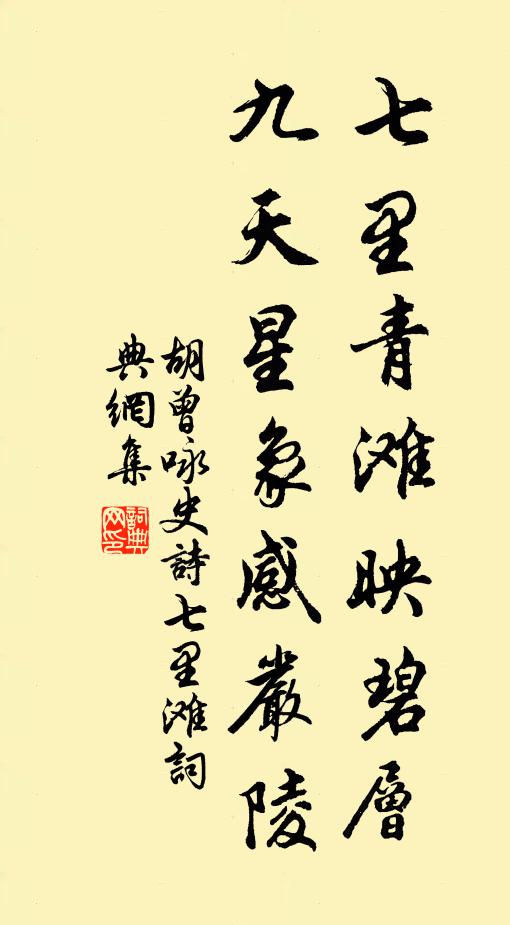 七里青滩映碧層
九天星象感嚴陵
胡曾咏史詩七里滩詞
典網集
詞典網印